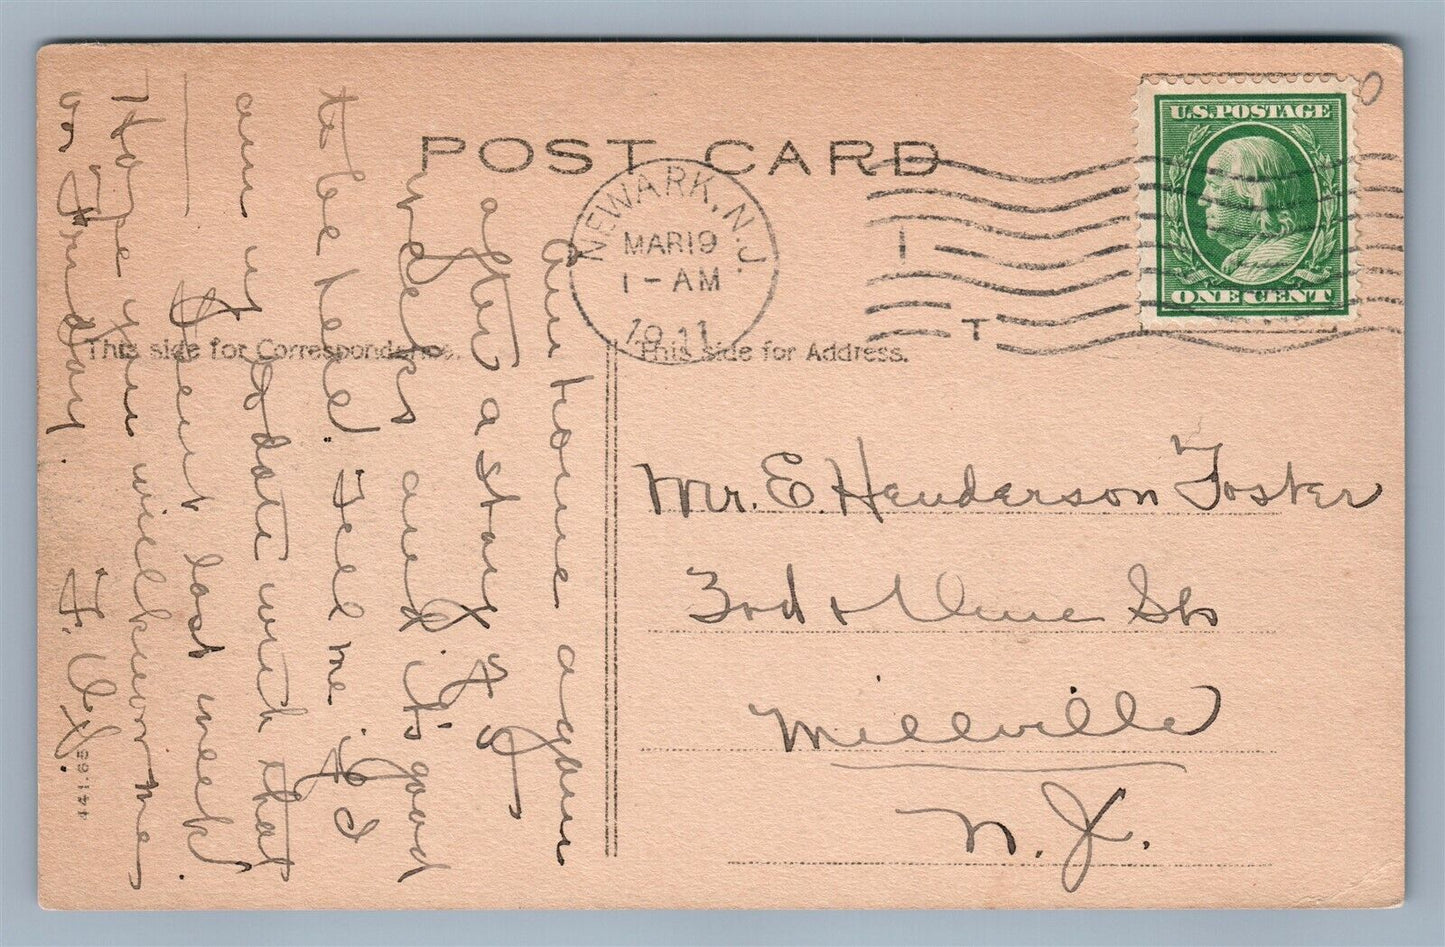 POST CARD
NEWARK, N.J.
MAR 19
1 - AM
1911
I
T
U.S. POSTAGE
ONE CENT
This side for Correspondence.
This side for Address.
Mr. E. Henderson Foster
3rd & Vine Sts
Millville
N. J.
Am home again
after a stay of 5
weeks and it's good
to be here. Tell me if I
am up to date with that
I sent last week.
Hope you will know me
on Sunday.
441.65